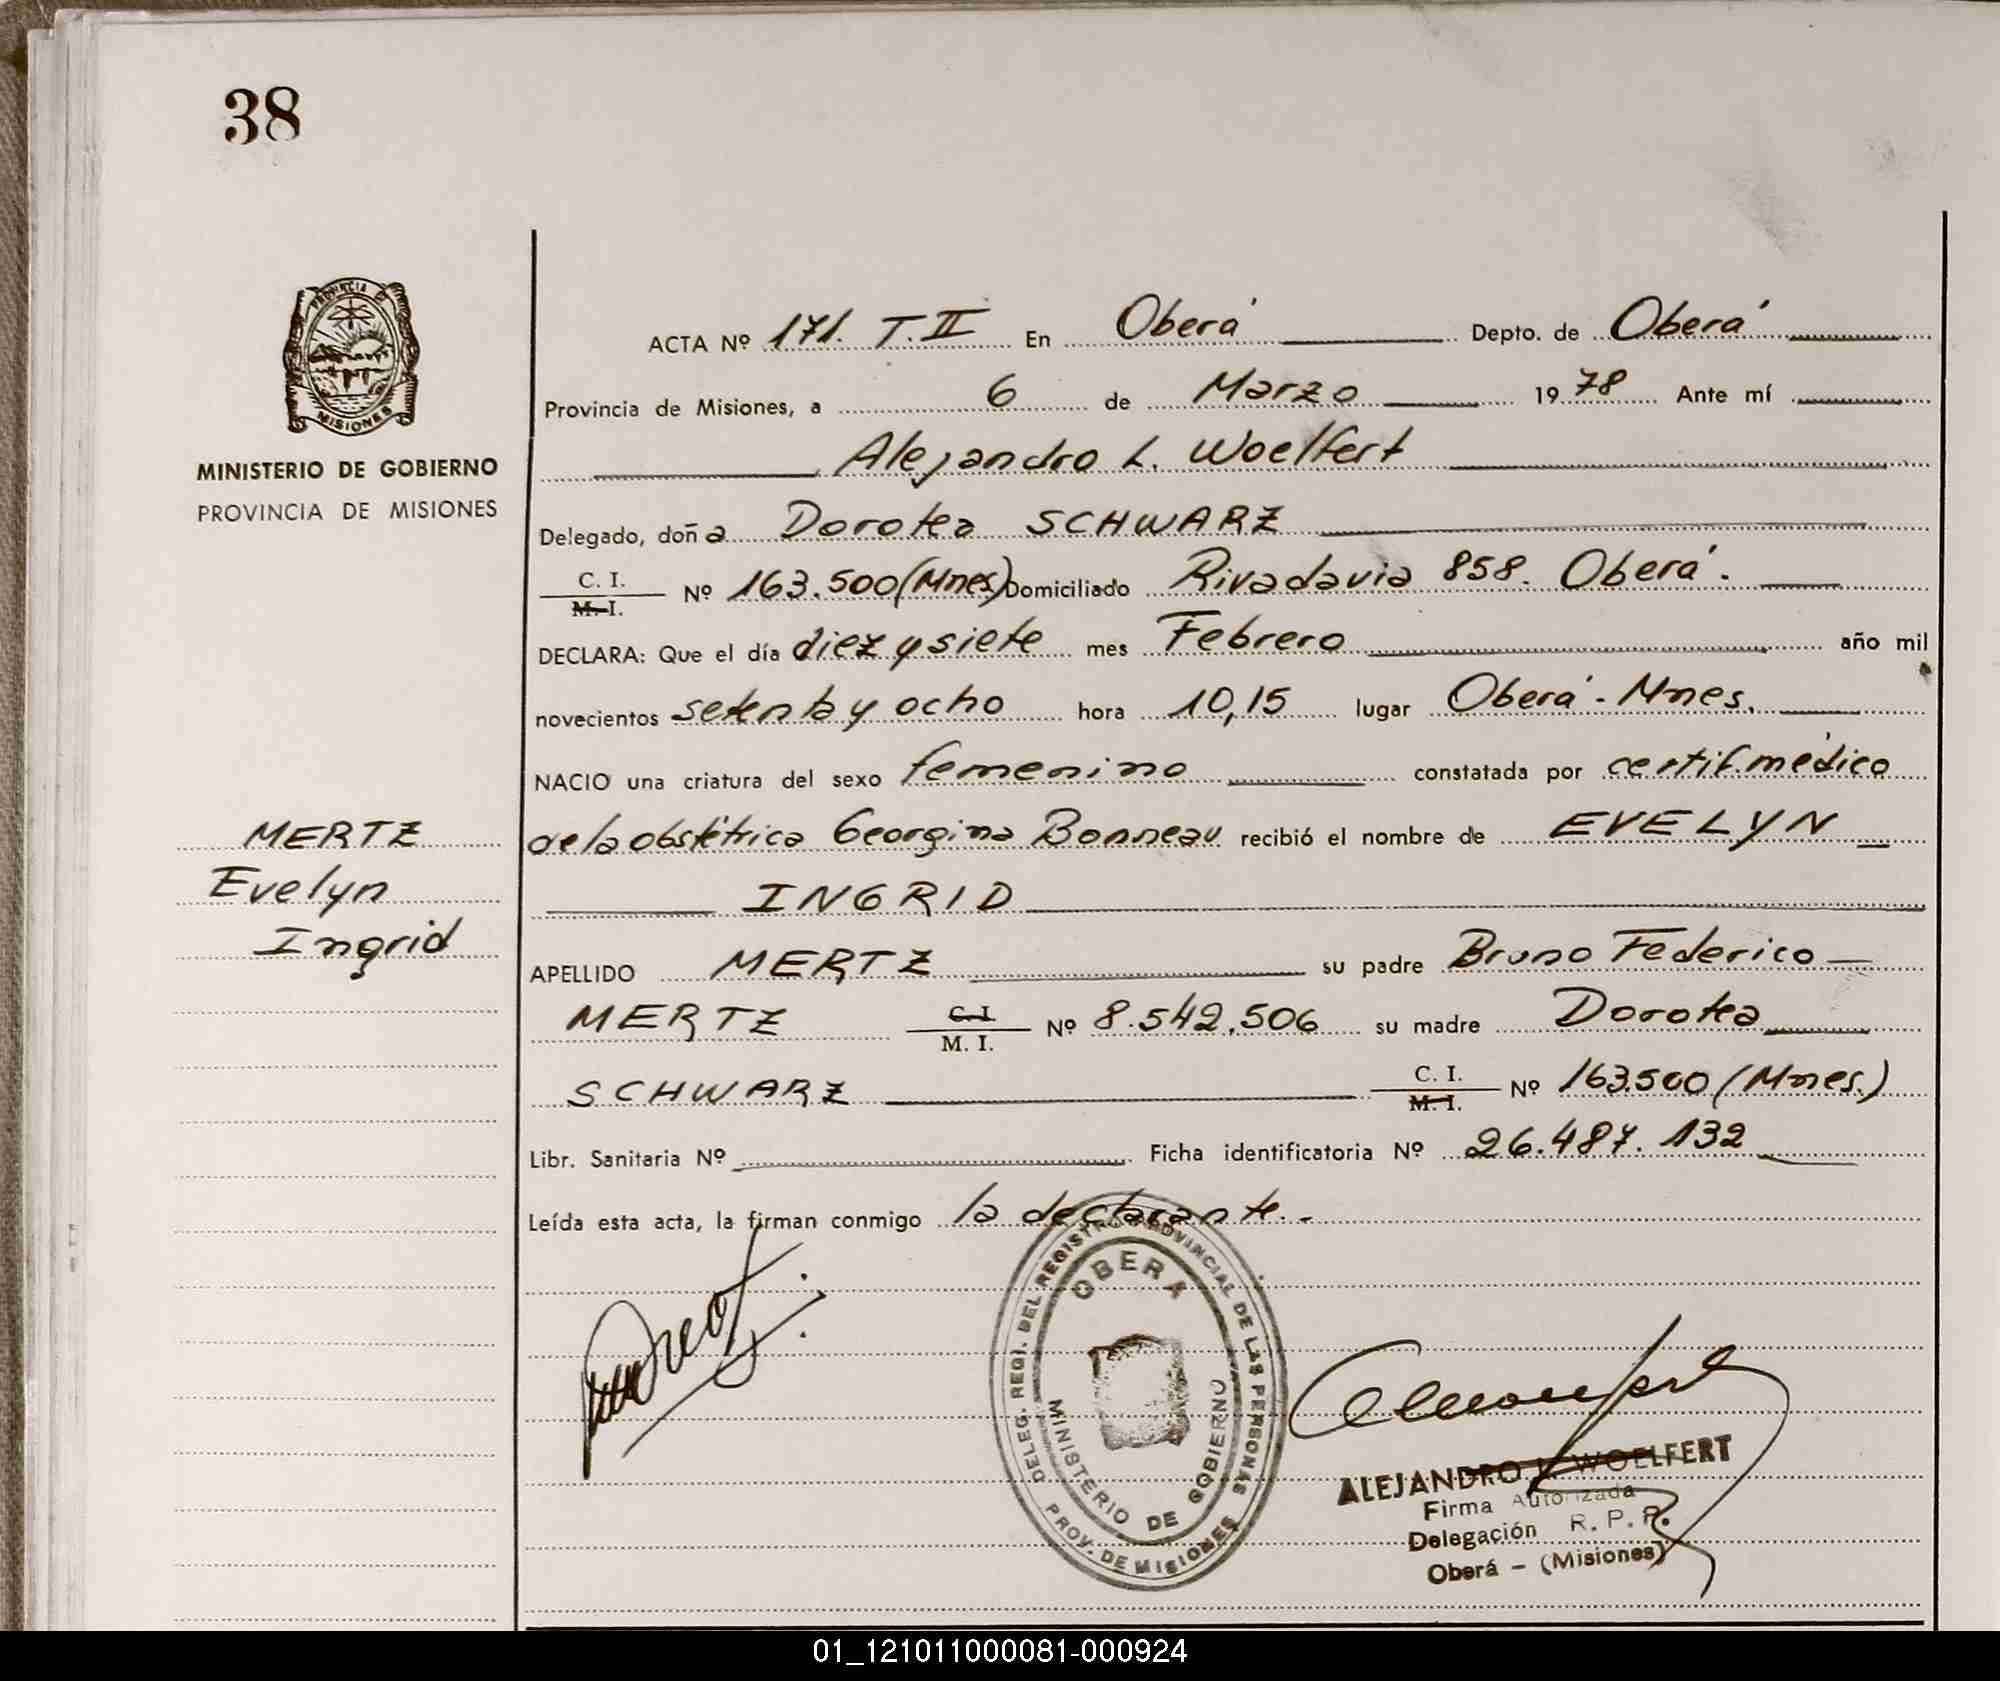 38
PROVINCIA DE
MISIONES
MINISTERIO DE GOBIERNO
PROVINCIA DE MISIONES
MERTZ
Evelyn
Ingrid
ACTA Nº 171. T.II En Oberá Depto. de Oberá
Provincia de Misiones, a 6 de Marzo 1978 Ante mí
Alejandro L. Woelfert
Delegado, doña Dorotea SCHWARZ
C. I.
M. I. Nº 163.500 (Mnes) Domiciliado Rivadavia 858. Oberá.
DECLARA: Que el día diez y siete mes Febrero año mil
novecientos setenta y ocho hora 10,15 lugar Oberá - Mnes.
NACIO una criatura del sexo femenino constatada por certif. médico
de la obstétrica Georgina Bonneau recibió el nombre de EVELYN
INGRID
APELLIDO MERTZ su padre Bruno Federico
MERTZ C. I. M. I. Nº 8.542.506 su madre Dorotea
SCHWARZ C. I. M. I. Nº 163.500 (Mnes.)
Libr. Sanitaria Nº Ficha identificatoria Nº 26.487.132
Leída esta acta, la firman conmigo la declarante.-
DELEG. REG. DEL REGISTRO PROVINCIAL DE LAS PERSONAS
OBERÁ
MINISTERIO DE GOBIERNO
PROV. DE MISIONES
ALEJANDRO L. WOELFERT
Firma Autorizada
Delegación R. P. P.
Oberá - (Misiones)
01_121011000081-000924